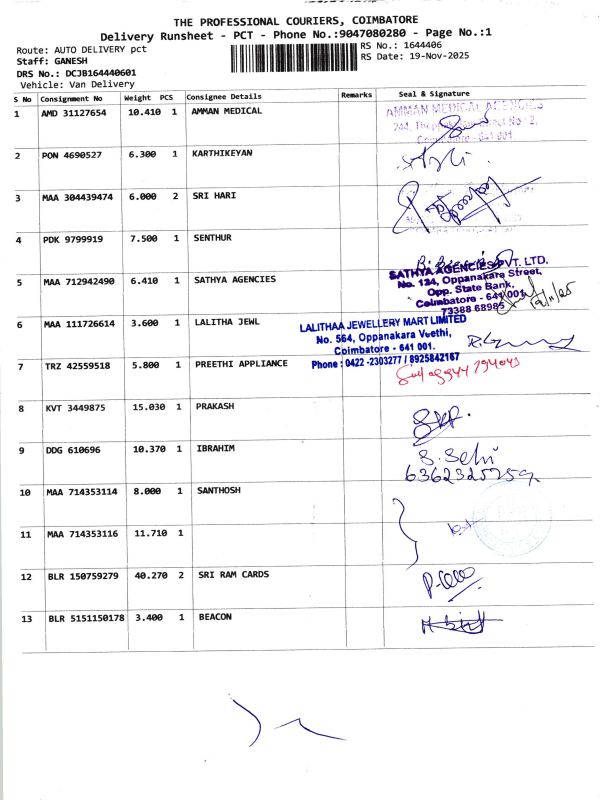 THE PROFESSIONAL COURIERS, COIMBATORE
Delivery Runsheet - PCT - Phone No.:9047080280 - Page No.:1
Route: AUTO DELIVERY pct
RS No.: 1644406
Staff: GANESH
RS Date: 19-Nov-2025
DRS No.: DCJB164440601
Vehicle: Van Delivery
S No Consignment No Weight PCS Consignee Details Remarks Seal & Signature
1 AMD 31127654 10.410 1 AMMAN MEDICAL
AMMAN MEDICAL AGENCIES
Coimbatore - 641 001
2 PON 4690527 6.300 1 KARTHIKEYAN
3 MAA 304439474 6.000 2 SRI HARI
4 PDK 9799919 7.500 1 SENTHUR
5 MAA 712942490 6.410 1 SATHYA AGENCIES
SATHYA AGENCIES PVT. LTD.
No. 124, Oppanakara Street,
Opp. State Bank,
Coimbatore - 641 001
73388 68985
6 MAA 111726614 3.600 1 LALITHA JEWL
LALITHAA JEWELLERY MART LIMITED
No. 564, Oppanakara Veethi,
Coimbatore - 641 001.
Phone : 0422 -2303277 / 8925842167
7 TRZ 42559518 5.800 1 PREETHI APPLIANCE
8 KVT 3449875 15.030 1 PRAKASH
9 DDG 610696 10.370 1 IBRAHIM
10 MAA 714353114 8.000 1 SANTHOSH
11 MAA 714353116 11.710 1
12 BLR 150759279 40.270 2 SRI RAM CARDS
13 BLR 5151150178 3.400 1 BEACON